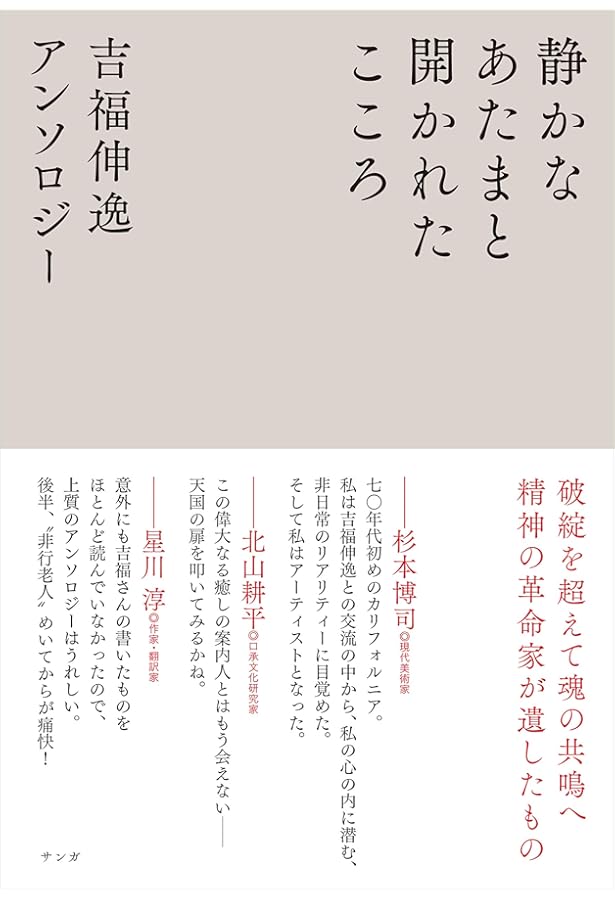 静かな
あたまと
開かれた
こころ
吉福伸逸
アンソロジー
破綻を超えて魂の共鳴へ
精神の革命家が遺したもの
――杉本博司◎現代美術家
七〇年代初めのカリフォルニア。
私は吉福伸逸との交流の中から、私の心の内に潜む、
非日常のリアリティーに目覚めた。
そして私はアーティストとなった。
――北山耕平◎口承文化研究家
この偉大なる癒しの案内人とはもう会えない――
天国の扉を叩いてみるかね。
――星川 淳◎作家・翻訳家
意外にも吉福さんの書いたものを
ほとんど読んでいなかったので、
上質のアンソロジーはうれしい。
後半、〝非行老人〟めいてからが痛快！
サンガ